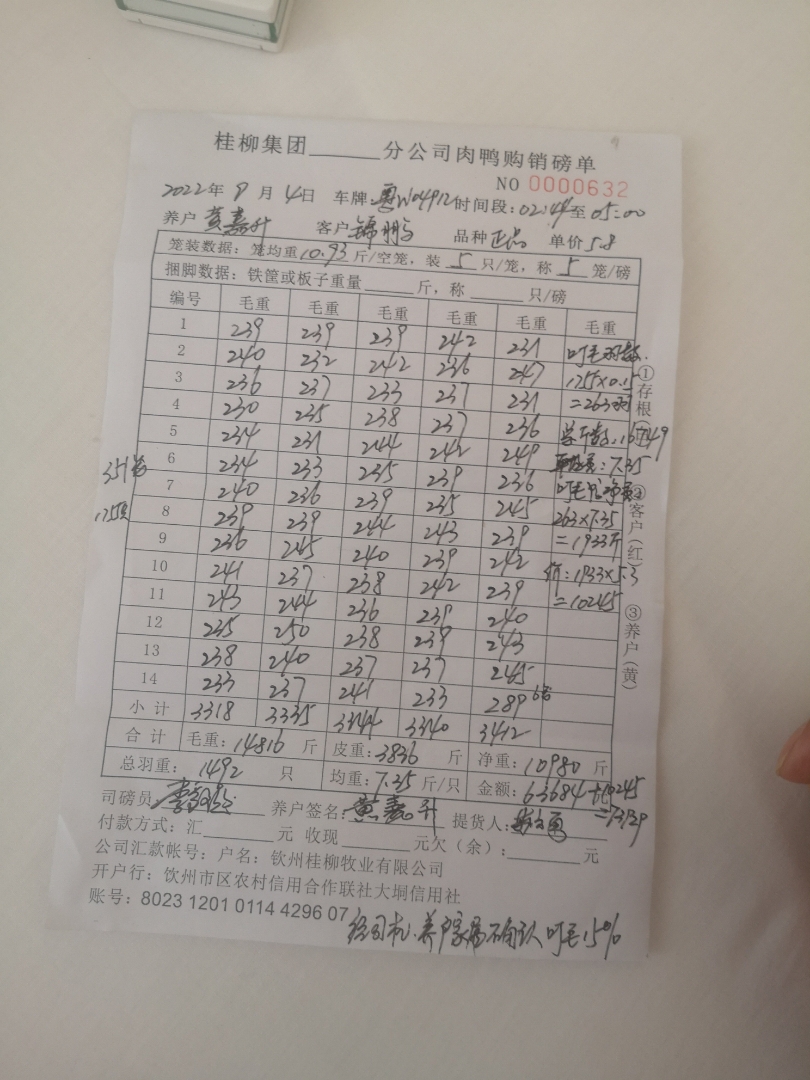 桂柳集团______分公司肉鸭购销磅单
NO 0000632
2022年9月4日 车牌:粤W04912 时间段:02:44至05:00
养户 黄嘉升 客户 锦鹏 品种 正品 单价5.8
笼装数据:笼均重10.93斤/空笼,装5只/笼,称5笼/磅
捆脚数据:铁筐或板子重量______斤,称______只/磅
编号 毛重 毛重 毛重 毛重 毛重 毛重
1 239 239 239 242 231
2 240 232 242 236 247 叼毛羽数.
3 236 237 233 237 231 1755×0.15
4 230 235 238 237 236 =263羽
5 234 231 244 242 249
6 234 233 235 239 236 7.35
7 240 236 239 235 245
8 239 239 244 243 239 263×7.35
9 236 245 240 239 242 =1933斤
10 241 237 238 242 239 价:1933×5.3
11 243 244 236 239 240 =10245
12 235 250 238 239 243
13 238 240 237 237 245
14 233 237 241 233 289 6笼
小计 3318 3335 3344 3340 3412
351笼
1755只
合计 毛重:14816斤 皮重:3836斤 净重:10980斤
总羽重:1492只 均重:7.35斤/只 金额:63684+10245
司磅员 养户签名:黄嘉升 提货人:
付款方式:汇______元 收现______元欠(余):______元
公司汇款帐号:户名:钦州桂柳牧业有限公司
开户行:钦州市区农村信用合作联社大垌信用社
账号:8023 1201 0114 4296 07
经司机.养户家属确认叼毛15%
①存根
②客户(红)
③养户(黄)